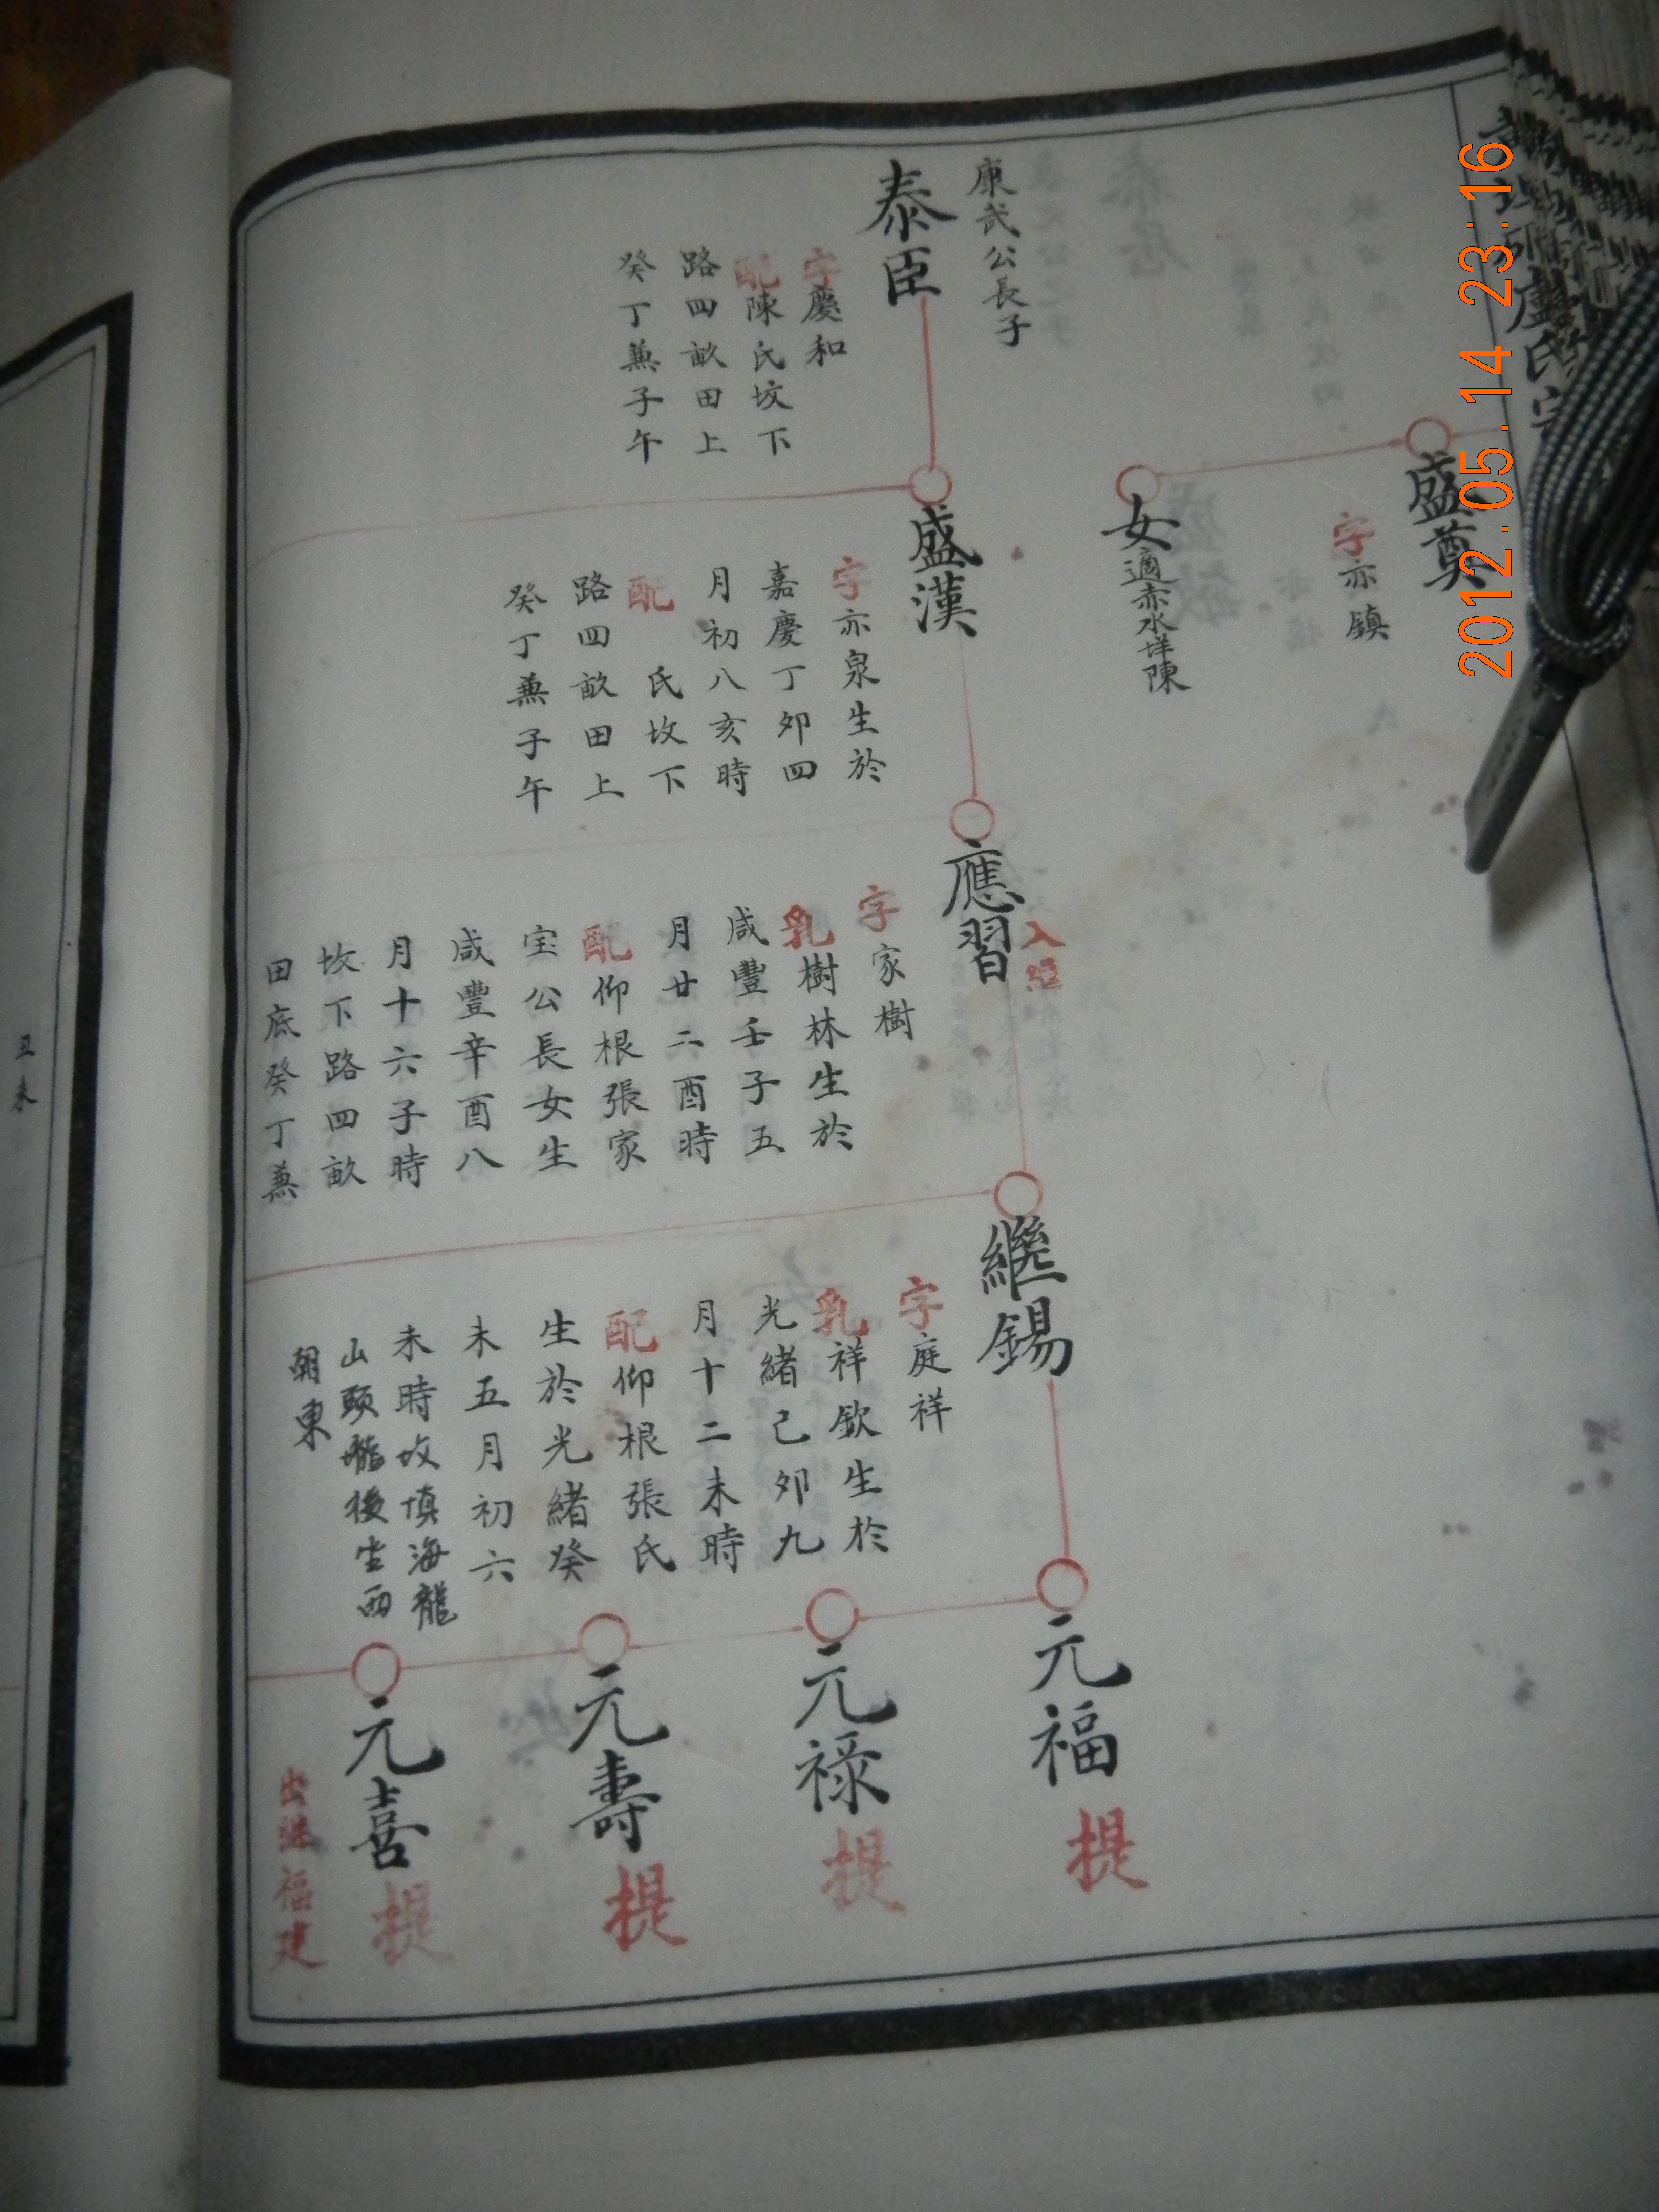 盧氏宗
盛奠
字亦鎮
女適赤水垟陳
康武公長子
泰臣
字慶和
配陳氏坟下
路四畝田上
癸丁兼子午
盛漢
字亦泉生於
嘉慶丁夘四
月初八亥時
配 氏坟下
路四畝田上
癸丁兼子午
入繼
應習
字家樹
乳樹林生於
咸豐壬子五
月廿二酉時
配仰根張家
宝公長女生
咸豐辛酉八
月十六子時
坟下路四畝
田底癸丁兼
繼錫
字庭祥
乳祥欽生於
光緒己夘九
月十二未時
配仰根張氏
生於光緒癸
未五月初六
未時坟填海龍
山頭壠後坐西
朝東
元福提
元祿提
元壽提
元喜提
出継福建
丑未
2012.05.14 23:16